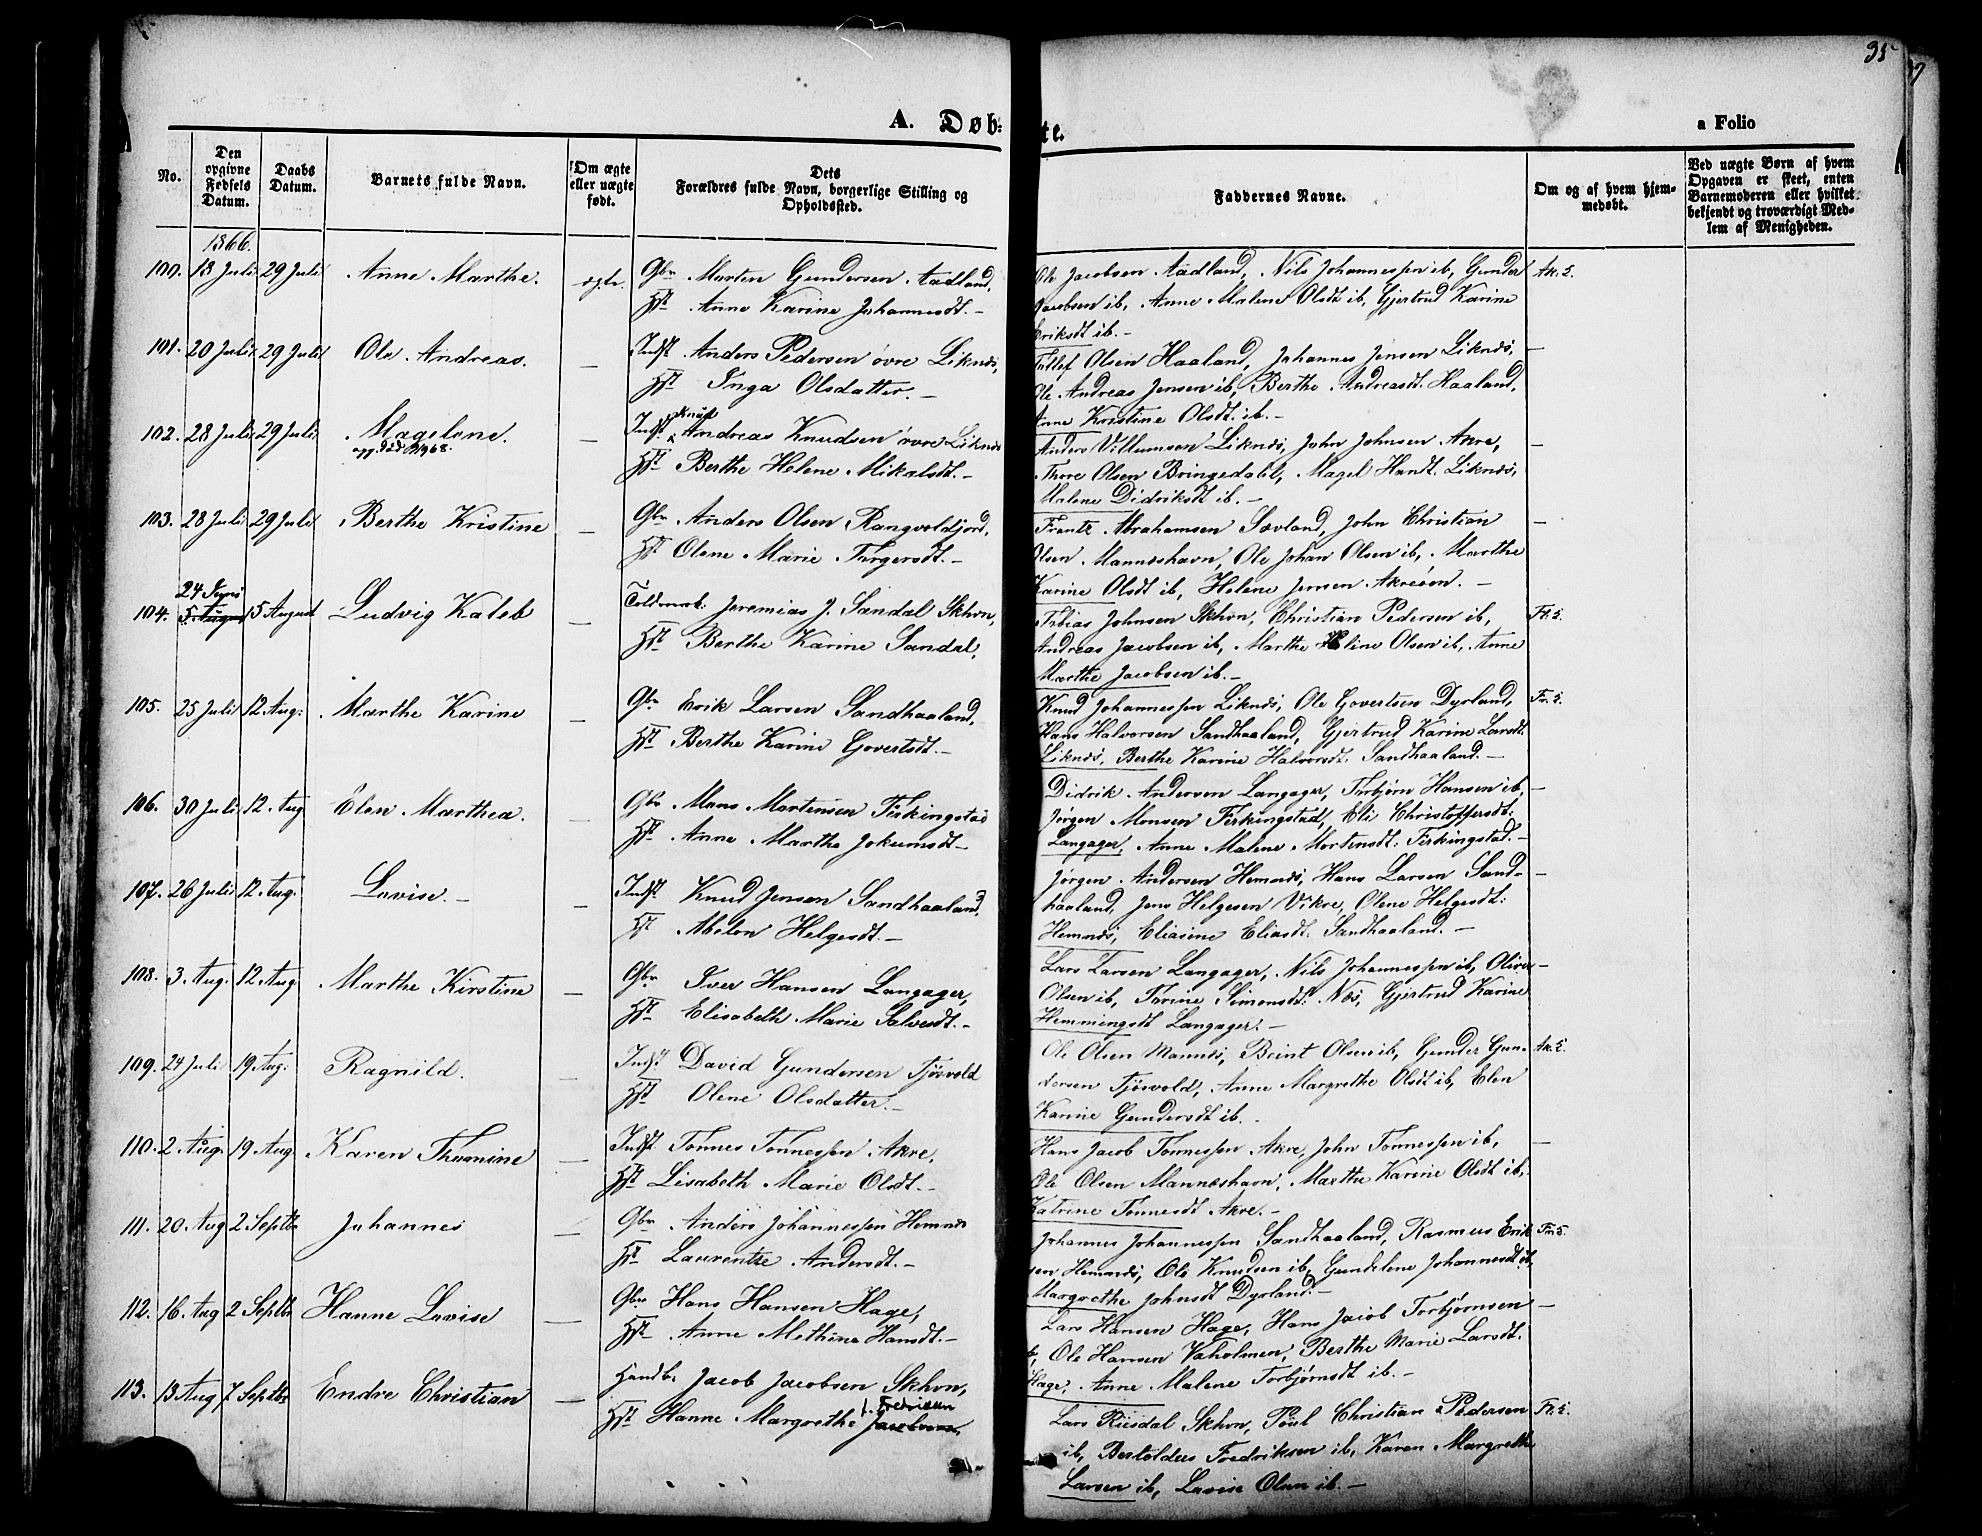 35
A. Døb-
te.
a Folio
No.
Den opgivne Fødsels Datum.
Daabs Datum.
Barnets fulde Navn.
Om ægte eller uægte født.
Dets Forældres fulde Navn, borgerlige Stilling og Opholdssted.
Faddernes Navne.
Om og af hvem hjemmedøbt.
Ved uægte Børn af hvem Opgaven er skeet, enten Barnemoderen eller hvilket bekjendt og troværdigt Medlem af Menigheden.
1866.
100. 18 Juli 29 Juli Anne Marthe. ægte. Gbr Morten Gundersen Aadland, Ole Jacobsen Aadland, Nils Johannessen ib, Gunder
Hst Anne Karine Johannesdt. - Jacobsen ib, Anne Malene Olsdt ib, Gjertrud Karine
Eriksdt ib. -
101. 20 Juli 29 Juli Ole Andreas. — Indst Anders Pedersen øvre Liknes, Tollef Olsen Haaland, Johannes Jensen Liknes, —
Hst Inga Olsdatter. - Ole Andreas Jensen ib, Berthe Andreasdt. Haaland,
Anne Kristine Olsdt. ib. -
102. 28 Juli 29 Juli Magelene. — Indst Knud Andreas Knudsen øvre Liknes Anders Villumsen Liknes, John Johnsen Akre, —
Hst Berthe Helene Mikalsdt. - Thore Olsen Bringedahl, Magel Hansdt. Liknes,
Malene Didriksdt ib. -
103. 28 Juli 29 Juli Berthe Kristine — Gbr Anders Olsen Rangvoldjord, Frantz Abrahamsen Sævland, John Christian —
Hst Olene Marie Torgersdt. - Olsen Manneshavn, Ole Johan Olsen ib, Marthe
Karine Olsdt ib, Helene Jensen Akreøen. -
24 Juni
104. 5 August 5 August Ludvig Kaleb — Toldrorsk. Jeremias J. Sandal Skhvn, Tobias Johnsen Skhvn, Christian Pedersen ib,
Hst Berthe Karine Sandal, Andreas Jacobsen ib, Marthe Heline Olsen ib, Anne
Marthe Jacobsen ib. -
105. 25 Juli 12 Aug: Marthe Karine — Gbr Erik Larsen Sandhaaland, Knud Johannessen Liknes, Ole Govertsen Dyrland,
Hst Berthe Karine Govertsdt. - Hans Halvorsen Sandhaaland, Gjertrud Karine Larsdt.
Liknes, Berthe Karine Halvorsdt. Sandhaaland. -
106. 30 Juli 12 Aug Elen Marthea. Gbr Mons Mortensen Ferkingstad Didrik Andersen Langager, Torbjørn Hansen ib, —
Hst Anne Marthe Jokumsdt - Jørgen Monsen Ferkingstad, Eli Christoffersdt.
Langager, Anne Malene Mortensdt. Ferkingstad. -
107. 26 Juli 12 Aug. Lovise. - — Indst Knud Jensen Sandhaaland, Jørgen Andersen Hemnes, Hans Larsen Sand- —
Hst Abelon Helgesdt. - haaland, Jens Helgesen Vikre, Olene Helgesdt:
Hemnes, Eliasine Eliasdt. Sandhaaland. -
108. 3. Aug. 12 Aug Marthe Kirstine — Gbr Iver Hansen Langager, Lars Larsen Langager, Nils Johannessen ib, Oliver —
Hst Elisabeth Marie Salvesdt. - Olsen ib, Torine Simonsdt. Næs, Gjertrud Karine
Hemmingsdt Langager. -
109. 24 Juli 19 Aug. Ragnild. — Indst David Gundersen Tjøsvold Ole Olsen Mannes, Beint Olsen ib, Gunder Gun-
Hst Olene Olsdatter. - dersen Tjøsvold, Anne Margrethe Olsdt ib, Elen
Karine Gundersdt ib. -
110. 2 Aug. 19 Aug Karen Thomine — Indst Tønnes Tønnessen Akre, Hans Jacob Tønnessen Akre, John Tønnessen ib, —
Hst Lisabeth Marie Olsdt. - Ole Olsen Manneshavn, Marthe Karine Olsdt ib,
Katrine Tønnesdt Akre. -
111. 20. Aug 2 Septbr Johannes — Gbr Anders Johannessen Hemnes Johannes Johannessen Sandhaaland, Rasmus Erik-
Hst Laurentze Andersdt. - sen Hemnes, Ole Knudsen ib, Gundelene Johannesdt ib,
Margrethe Johnsdt Dyrland. -
112. 16. Aug 2 Septbr Hanne Lovise — Gbr Hans Hansen Hage, Lars Hansen Hage, Hans Jacob Torbjørnsen —
Hst Anne Mathine Hansdt. - ib, Ole Hansen Vaholmen, Berthe Marie Larsdt.
Hage, Anne Malene Torbjørnsdt ib. -
113. 13 Aug 7 Septbr Endre Christian — Handb. Jacob Jacobsen Skhvn, Lars Riisdal Skhvn, Poul Christian Pedersen
Hst Hanne Margrethe Jacobsen, f. Fredriksen ib, Bertoldus Fredriksen ib, Karen Margrethe
Larsen ib, Lovise Olsen ib. -